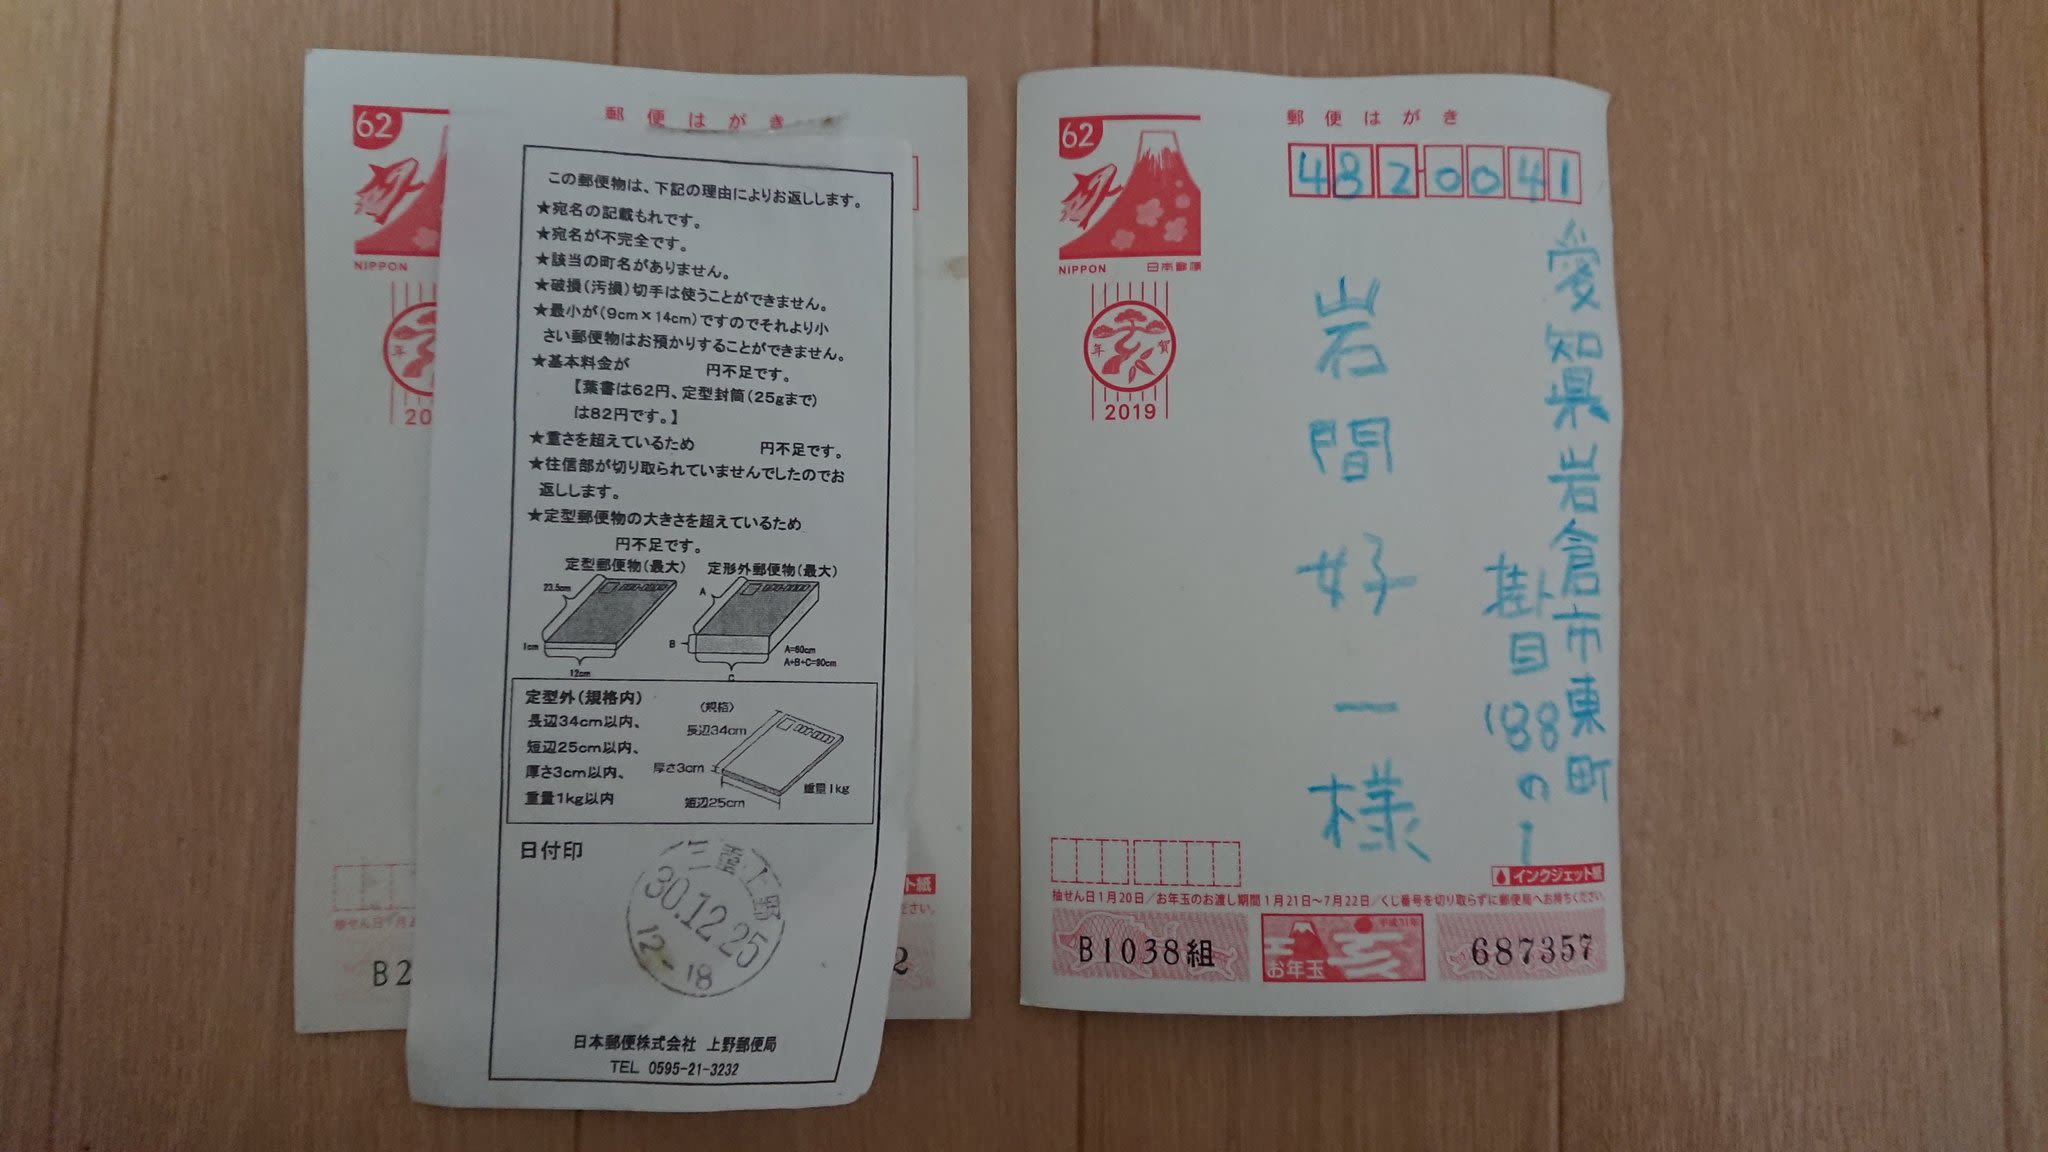 62
郵便はがき
NIPPON
年
20
この郵便物は、下記の理由によりお返しします。
★宛名の記載もれです。
★宛名が不完全です。
★該当の町名がありません。
★破損(汚損)切手は使うことができません。
★最小が(9cm×14cm)ですのでそれより小
さい郵便物はお預かりすることができません。
★基本料金が 円不足です。
【葉書は62円、定型封筒(25gまで)
は82円です。】
★重さを超えているため 円不足です。
★往信部が切り取られていませんでしたのでお
返しします。
★定型郵便物の大きさを超えているため
円不足です。
定型郵便物(最大) 定形外郵便物(最大)
23.5cm
1cm
12cm
A
B
C
A=60cm
A+B+C=90cm
定型外(規格内)
長辺34cm以内、
短辺25cm以内、
厚さ3cm以内、
重量1kg以内
〈規格〉
長辺34cm
厚さ3cm
短辺25cm
重量1kg
日付印
三重・上野
30.12.25
12-18
日本郵便株式会社 上野郵便局
TEL 0595-21-3232
ト紙
抽せん日1月2
ださい。
B2
2
62
郵便はがき
NIPPON 日本郵便
482-0041
年賀
2019
愛知県岩倉市東町
掛目188の1
岩間好一様
インクジェット紙
抽せん日1月20日/お年玉のお渡し期間1月21日~7月22日/くじ番号を切り取らずに郵便局へお持ちください。
B1038組
平成31年
お年玉
687357